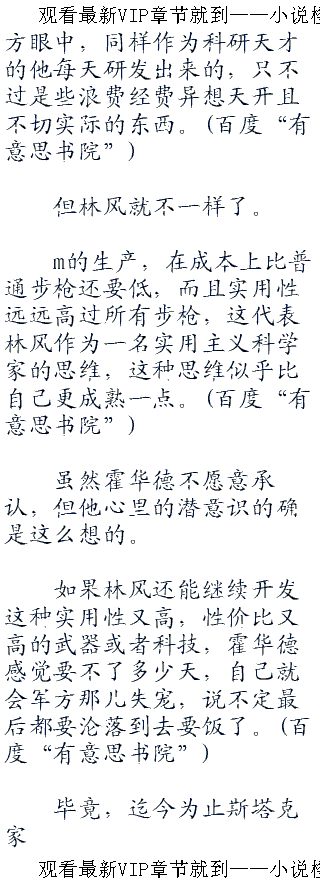 观看最新VIP章节就到——小说检
方眼中，同样作为科研天才
的他每天研发出来的，只不
过是些浪费经费异想天开且
不切实际的东西。(百度“有
意思书院”)
但林风就不一样了。
m的生产，在成本上比普
通步枪还要低，而且实用性
远远高过所有步枪，这代表
林风作为一名实用主义科学
家的思维，这种思维似乎比
自己更成熟一点。(百度“有
意思书院”)
虽然霍华德不愿意承
认，但他心里的潜意识的确
是这么想的。
如果林风还能继续开发
这种实用性又高，性价比又
高的武器或者科技，霍华德
感觉要不了多少天，自己就
会军方那儿失宠，说不定最
后都要沦落到去要饭了。(百
度“有意思书院”)
毕竟，迄今为止斯塔克
家
观看最新VIP章节就到——小说检